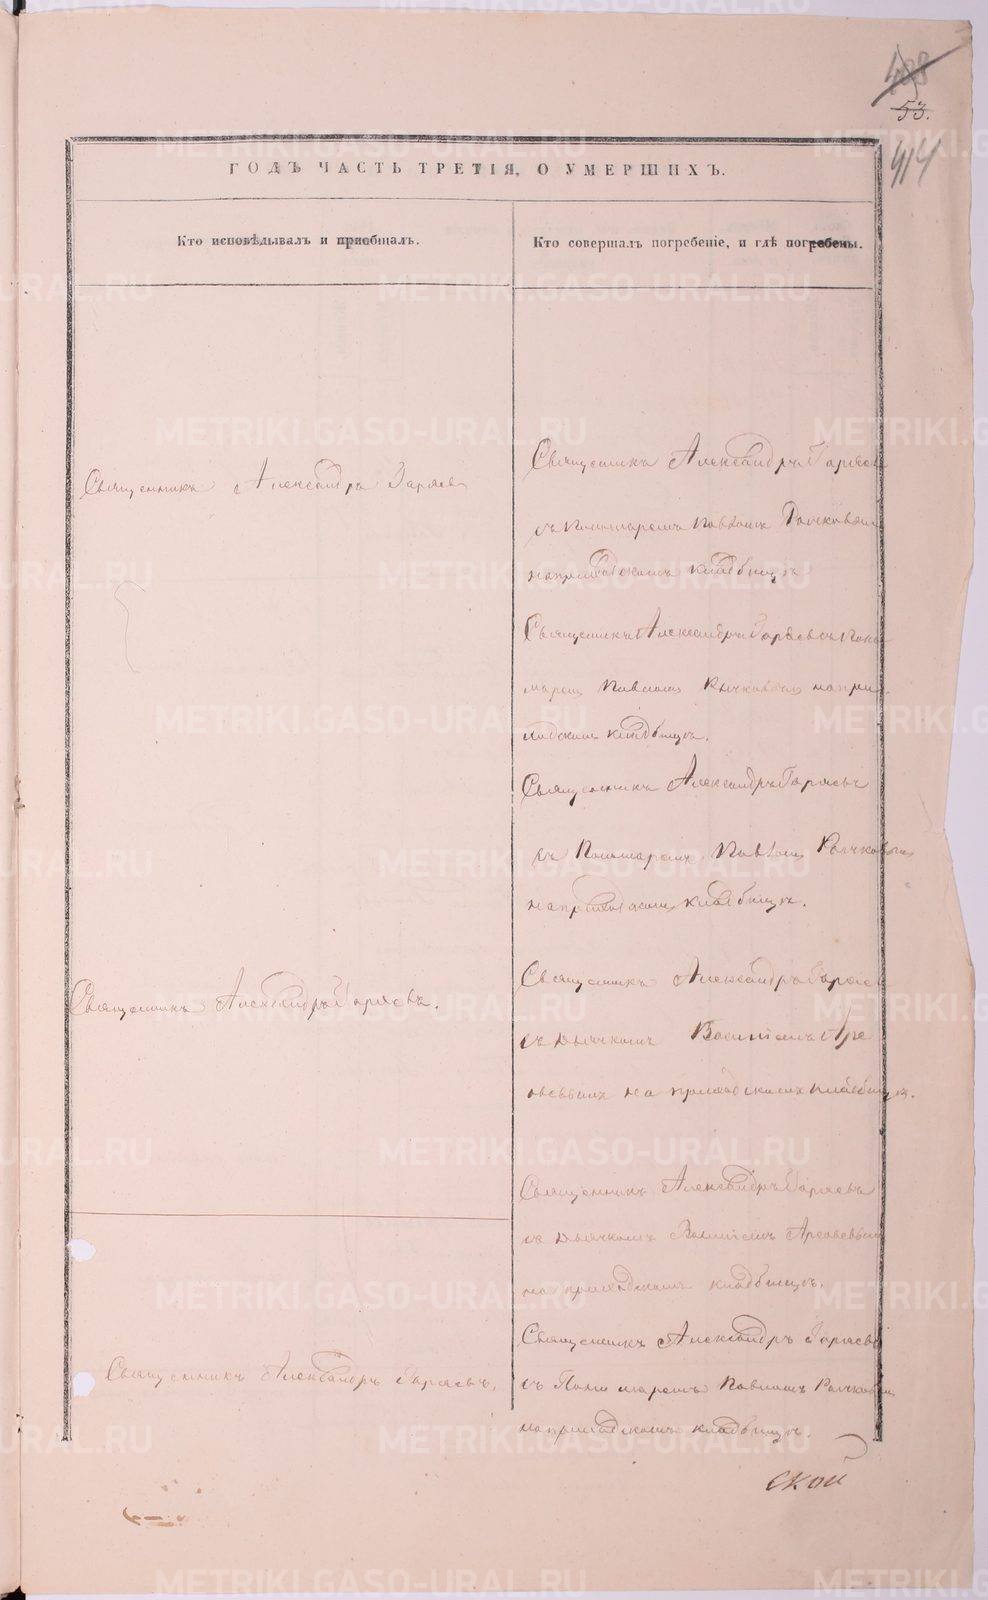 488
53.
414
ГОДЪ ЧАСТЬ ТРЕТІЯ, О УМЕРШИХЪ.
Кто исповѣдывалъ и пріобщалъ.
Кто совершалъ погребеніе, и гдѣ погребены.
Священникъ Александръ Гаряевъ
Священникъ Александръ Гаряевъ
съ Пономаремъ Павломъ Рычковымъ
на приходскомъ кладбищѣ
Священникъ Александръ Гаряевъ съ Поно
маремъ Павломъ Рычковымъ на при
ходскомъ кладбищѣ.
Священникъ Александръ Гаряевъ
съ Пономаремъ Павломъ Рычковымъ
на приходскомъ кладбищѣ.
Священникъ Александръ Гаряевъ.
Священникъ Александръ Гаряевъ
съ дьячкомъ Васильемъ
на приходскомъ кладбищѣ.
Священникъ Александръ Гаряевъ
съ дьячкомъ
на приходскомъ кладбищѣ.
Священникъ Александръ Гаряевъ.
Священникъ Александръ Гаряевъ
съ Пономаремъ Павломъ Рычковымъ
на приходскомъ кладбищѣ.
ской
METRIKI.GASO-URAL.RU